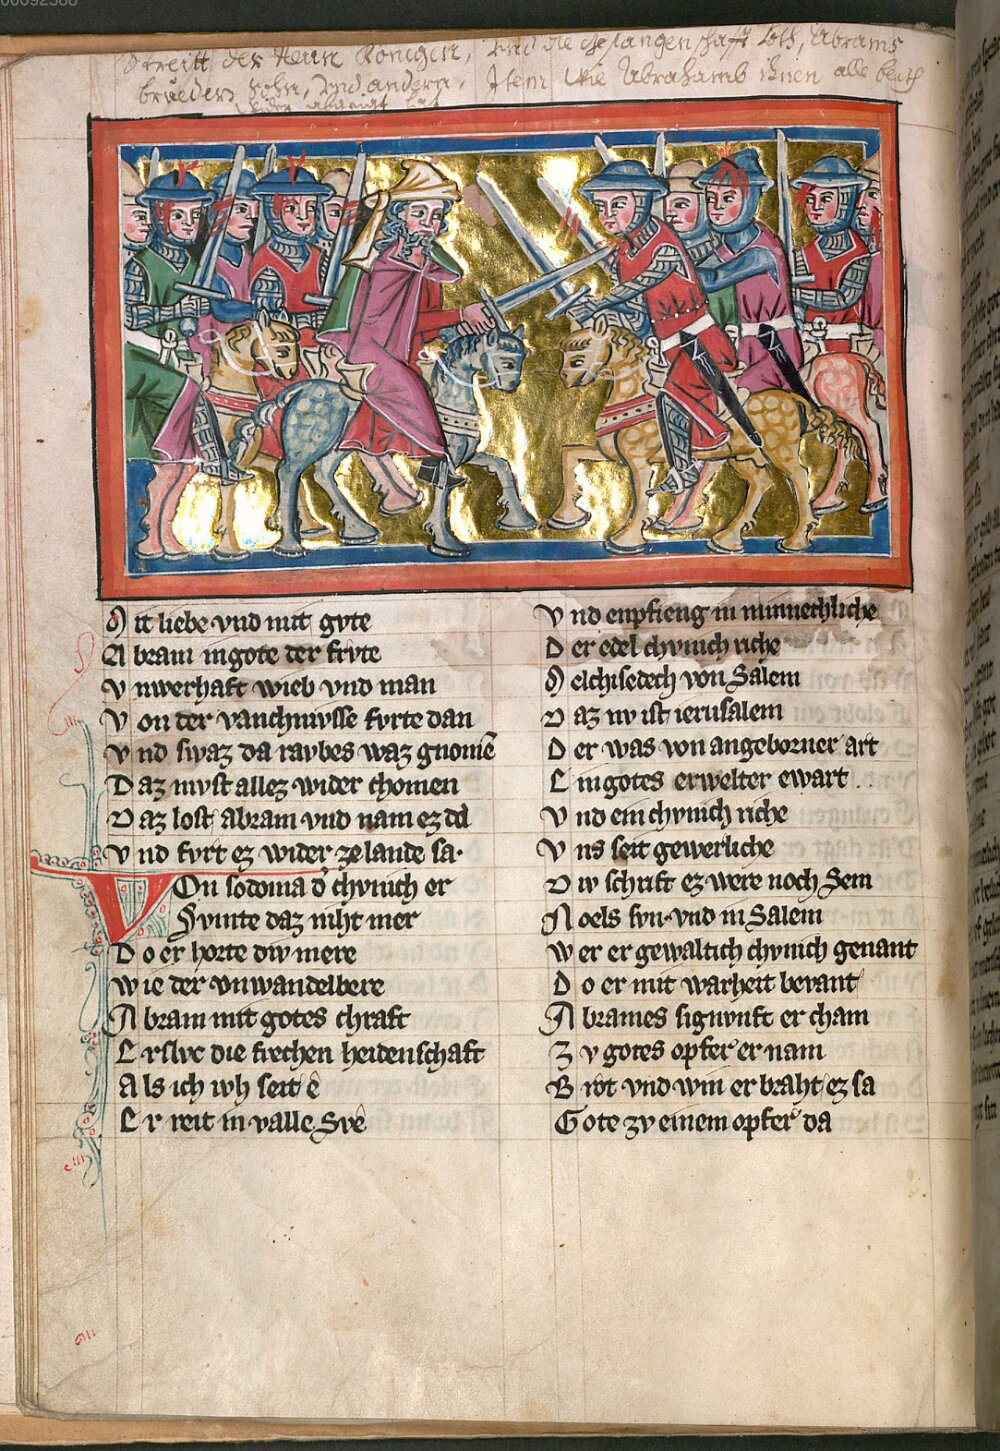 00092588
Streitt der Neun Königen, vnd die gefangenschafft Loth, Abrams
brueders Sohn, vnd andern. Item wie Abrahamb ihnen alle beuth
wider abgeiagt hat
Mit liebe vnd mit gvte
Abram in gote der frvte
Vnwerhaft wieb vnd man
Von der vanchnvsse fvrte dan
Vnd swaz da ravbes waz gnomē
Daz mvst allez wider chomen
Daz lost abram vnd nam ez da
Vnd fvrt ez wider ze lande sa·
Von sodoma d' chvnich er
Svmte daz niht mer
Do er horte div mere
wie der vnwandelbere
Abram mit gotes chraft
Erslvc die frechen heidenschaft
Als ich ivh seit ê
Er reit in valle Sve
Vnd enpfieng in minnechliche
Der edel chvnich riche
Melchisedech von Salem
Daz nv ist ierusalem
Der was von angeborner art
Ein gotes erwelter ewart
Vnd ein chvnich riche
Vns seit gewerliche
Div schrift ez were noch Sem
Noes svn· vnd in Salem
wer er gewaltich chvnich genant
Do er mit warheit bevant
Abrames signvnft er cham
Zv gotes opfer er nam
Brot vnd win er braht ez sa
Gote zv einem opfer da